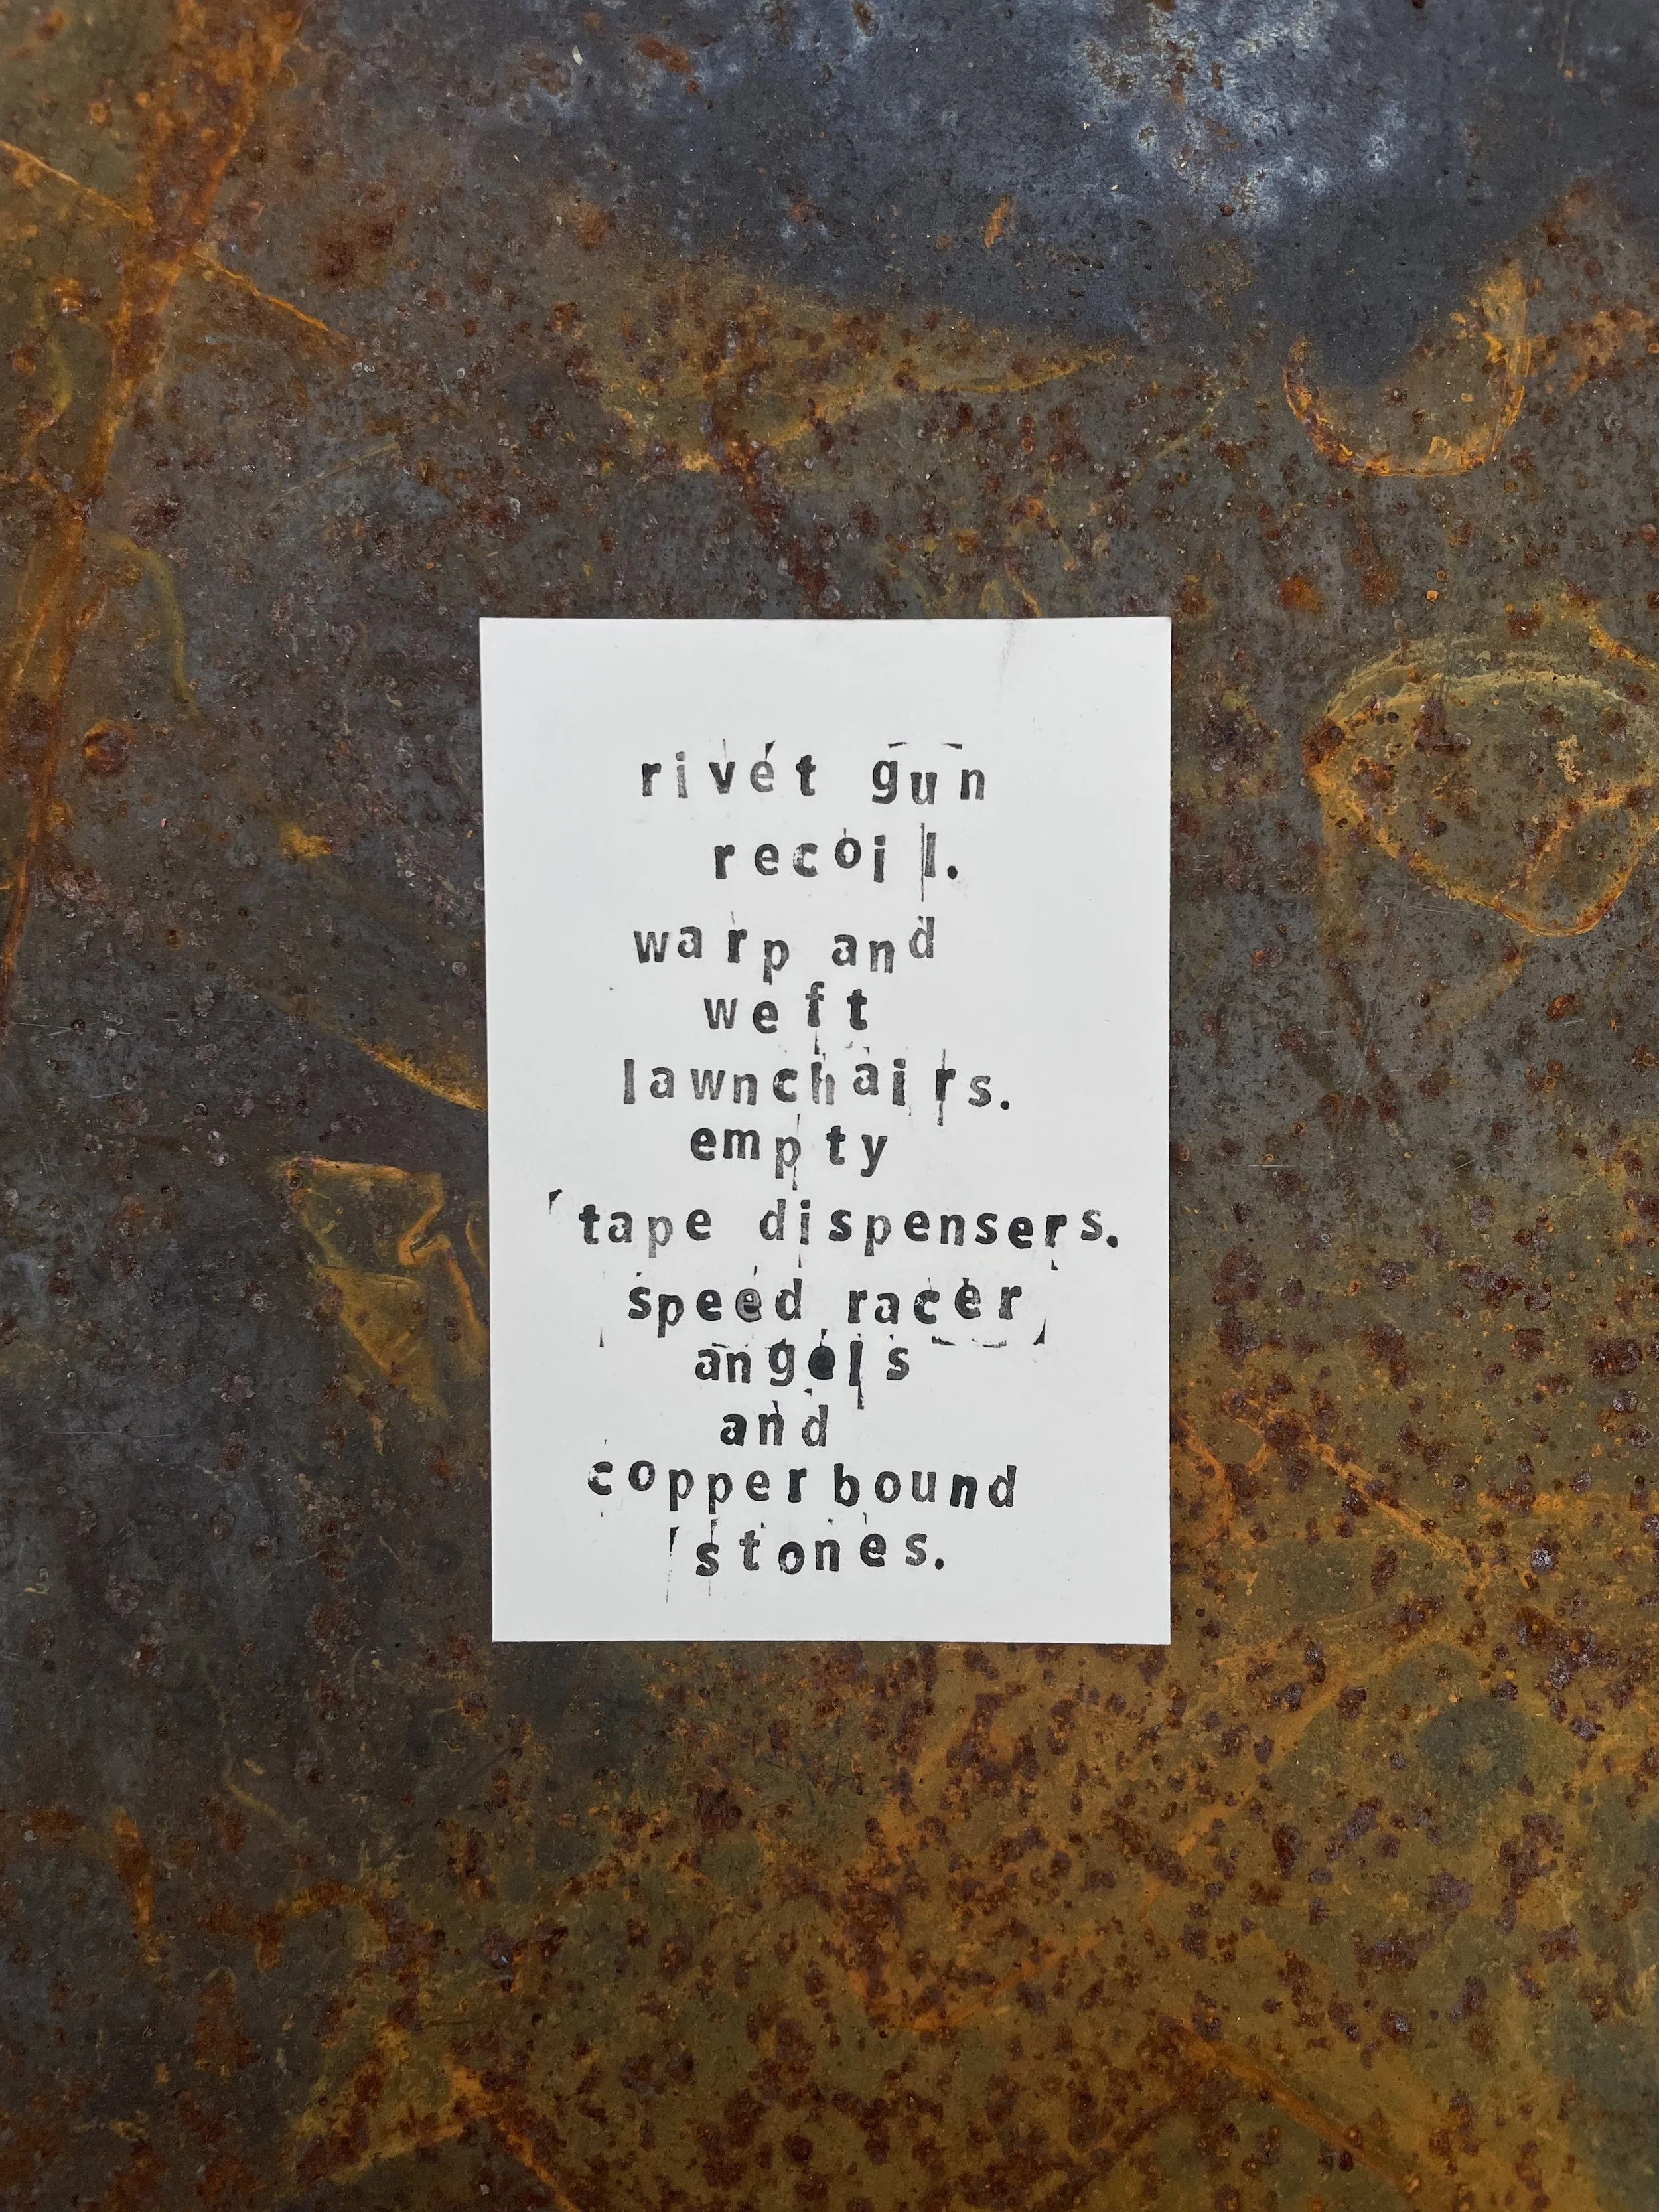 rivet gun
recoil.
warp and
weft
lawnchairs.
empty
tape dispensers.
speed racer
angels
and
copper bound
stones.